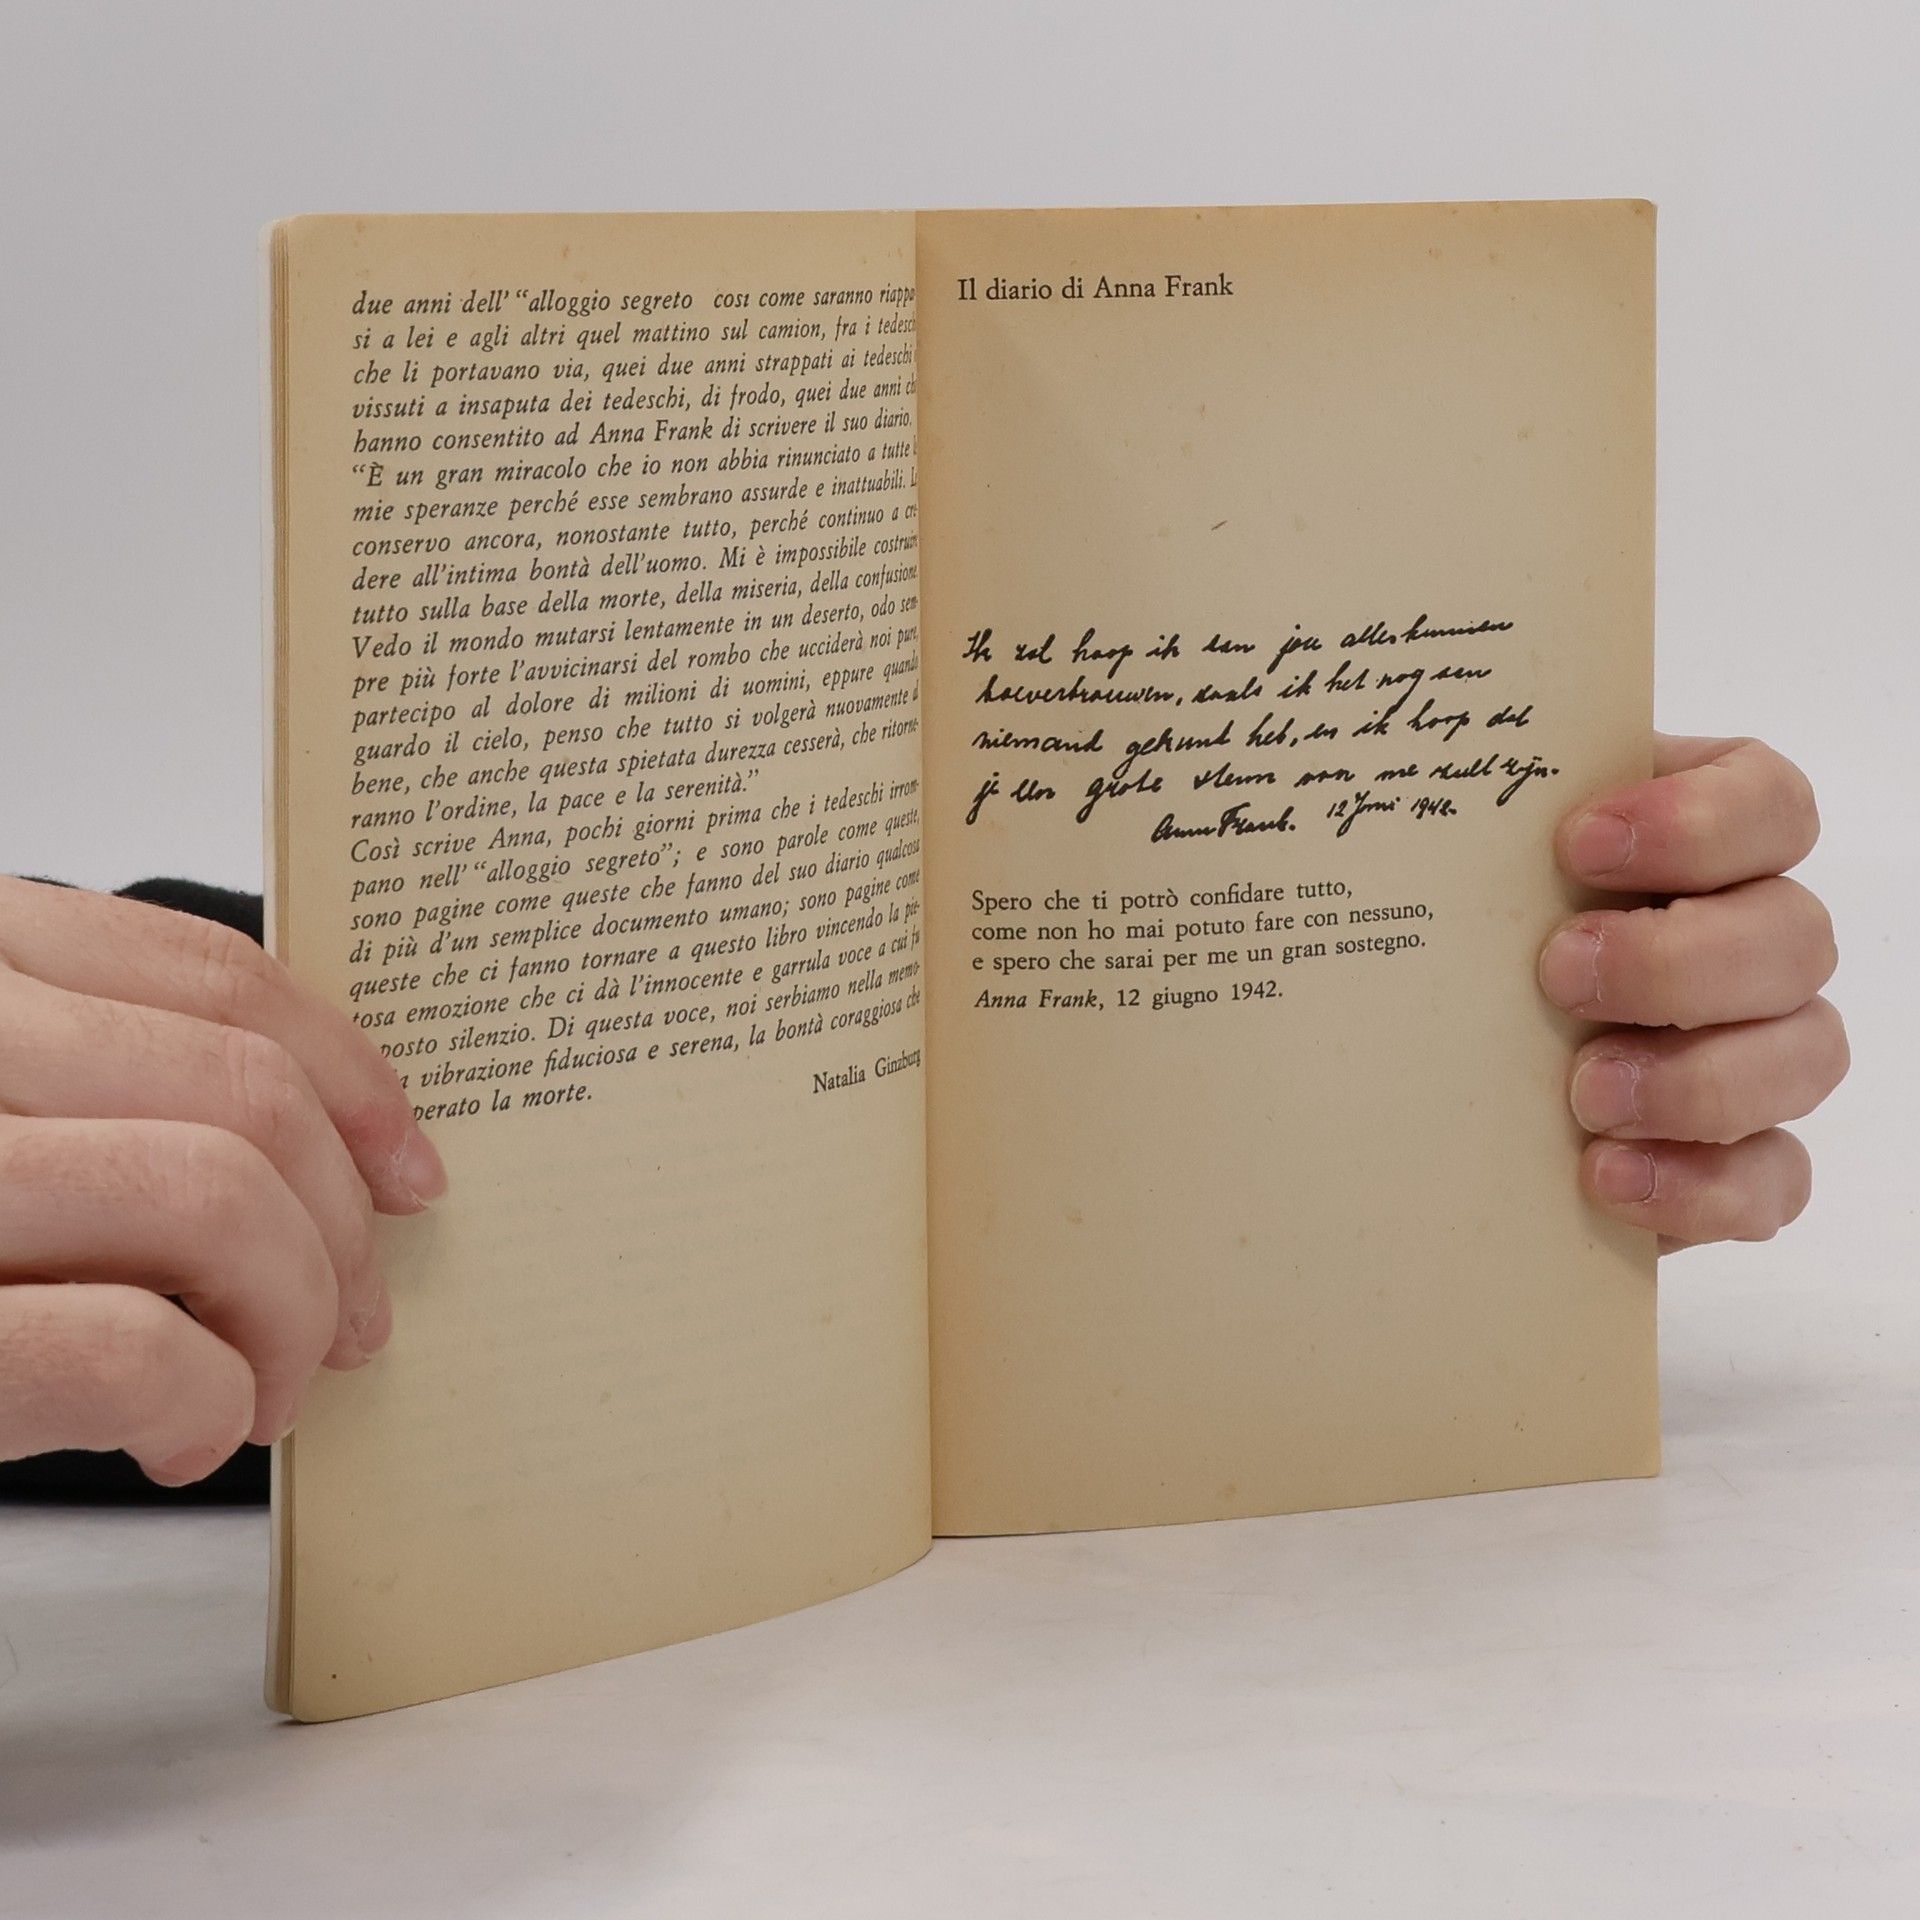 due anni dell' “alloggio segreto cosı come saranno riappa
si a lei e agli altri quel mattino sul camion, fra i tedesch
che li portavano via, quei due anni strappati ai tedeschi
vissuti a insaputa dei tedeschi, di frodo, quei due anni ch
hanno consentito ad Anna Frank di scrivere il suo diario.
“È un gran miracolo che io non abbia rinunciato a tutte l
mie speranze perché esse sembrano assurde e inattuabili. L
conservo ancora, nonostante tutto, perché continuo a cre-
dere all'intima bontà dell'uomo. Mi è impossibile costruire
tutto sulla base della morte, della miseria, della confusione.
Vedo il mondo mutarsi lentamente in un deserto, odo sem-
pre più forte l'avvicinarsi del rombo che ucciderà noi pure,
partecipo al dolore di milioni di uomini, eppure quando
guardo il cielo, penso che tutto si volgerà nuovamente al
bene, che anche questa spietata durezza cesserà, che ritorne-
ranno l'ordine, la pace e la serenità.”
Così scrive Anna, pochi giorni prima che i tedeschi irrom-
pano nell' “alloggio segreto”; e sono parole come queste,
sono pagine come queste che fanno del suo diario qualcosa
di più d'un semplice documento umano; sono pagine come
queste che ci fanno tornare a questo libro vincendo la pie-
tosa emozione che ci dà l'innocente e garrula voce a cui fu
posto silenzio. Di questa voce, noi serbiamo nella memo-
vibrazione fiduciosa e serena, la bontà coraggiosa che
perato la morte.
Natalia Ginzburg
Il diario di Anna Frank
Ik zal hoop ik aan jou alles kunnen
toevertrouwen, zoals ik het nog aan
niemand gekund heb, en ik hoop dat
je een grote steun van me zult zijn.
Anne Frank. 12 Juni 1942.
Spero che ti potrò confidare tutto,
come non ho mai potuto fare con nessuno,
e spero che sarai per me un gran sostegno.
Anna Frank, 12 giugno 1942.